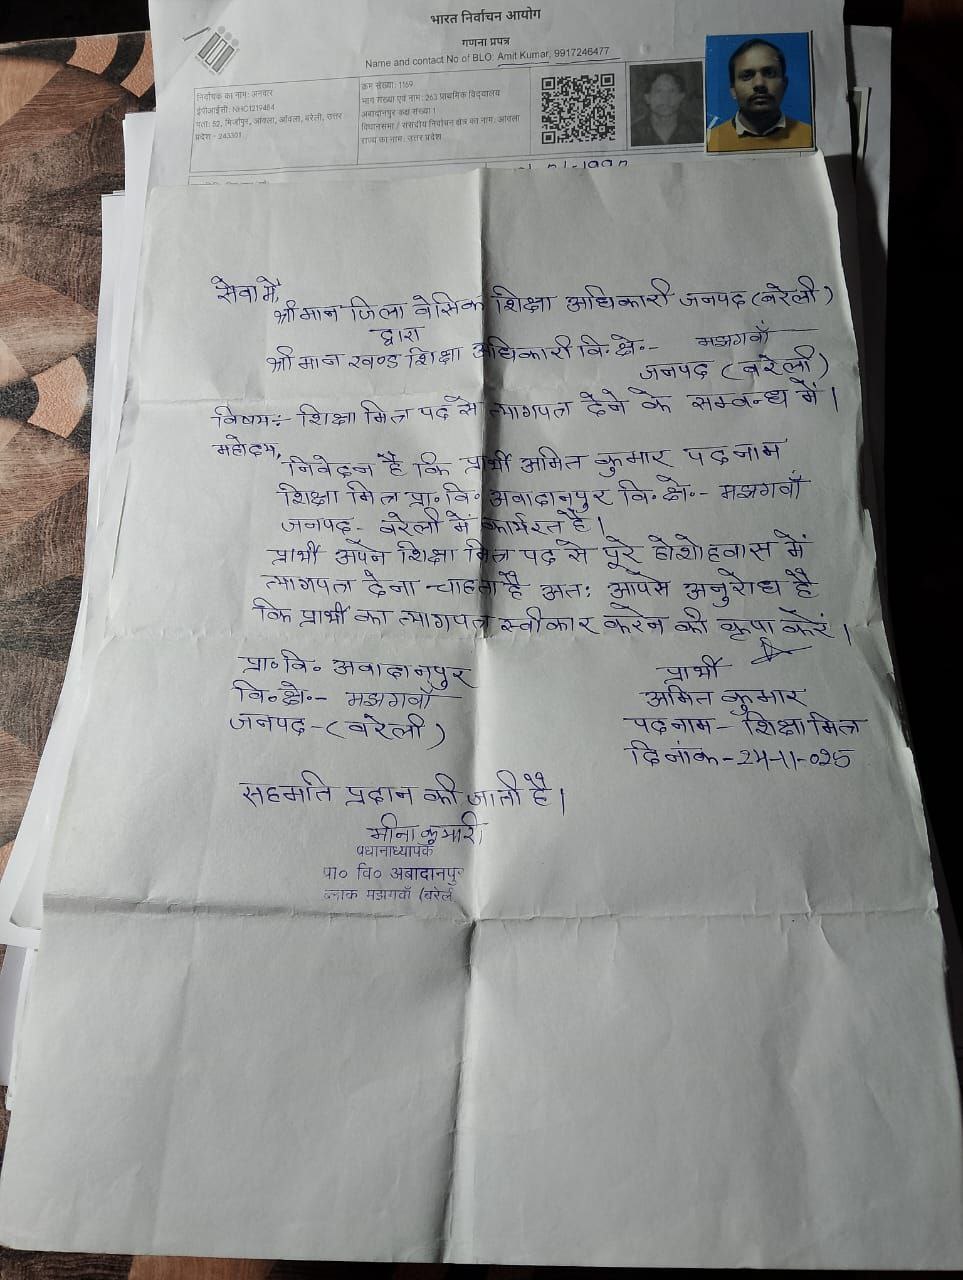 भारत निर्वाचन आयोग
गणना प्रपत्र
Name and contact No of BLO: Amit Kumar, 9917246477
निर्वाचक का नाम: अनवार
ईपीआईसी: NHC1219464
पता: 52, मिर्जापुर, आंवला, आँवला, बरेली, उत्तर
प्रदेश - 243301
क्रम संख्या: 1169
भाग संख्या एवं नाम: 263 प्राथमिक विद्यालय
अबादानपुर कक्ष संख्या 1
विधानसभा / संसदीय निर्वाचन क्षेत्र का नाम: आंवला
राज्य का नाम: उत्तर प्रदेश
सेवा में,
श्रीमान जिला वेसिक शिक्षा अधिकारी जनपद (बरेली)
द्वारा
श्रीमान खण्ड शिक्षा अधिकारी वि.क्षे.- मझगवाँ
जनपद (बरेली)
विषय:- शिक्षा मित्र पद से त्यागपत्र देने के सम्बन्ध में।
महोदय,
निवेदन है कि प्रार्थी अमित कुमार पदनाम
शिक्षा मित्र प्रा.वि. अवादानपुर वि.क्षे.- मझगवाँ
जनपद- बरेली में कार्यरत है।
प्रार्थी अपने शिक्षा मित्र पद से पूरे होशोहवास में
त्यागपत्र देना चाहता है अतः आपसे अनुरोध है
कि प्रार्थी का त्यागपत्र स्वीकार करने की कृपा करें।
प्रा.वि. अवादानपुर
वि.क्षे.- मझगवाँ
जनपद-(बरेली)
प्रार्थी
अमित कुमार
पदनाम- शिक्षा मित्र
दिनांक-24-11-025
सहमति प्रदान की जाती है।
मीना कुमारी
प्रधानाध्यापक
प्रा० वि० अबादानपुर
ब्लाक मझगवाँ (बरेली